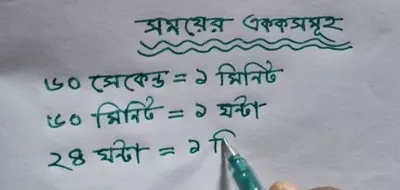 সময়ের এককসমূহ
৬০ সেকেন্ড = ১ মিনিট
৬০ মিনিট = ১ ঘন্টা
২৪ ঘন্টা = ১